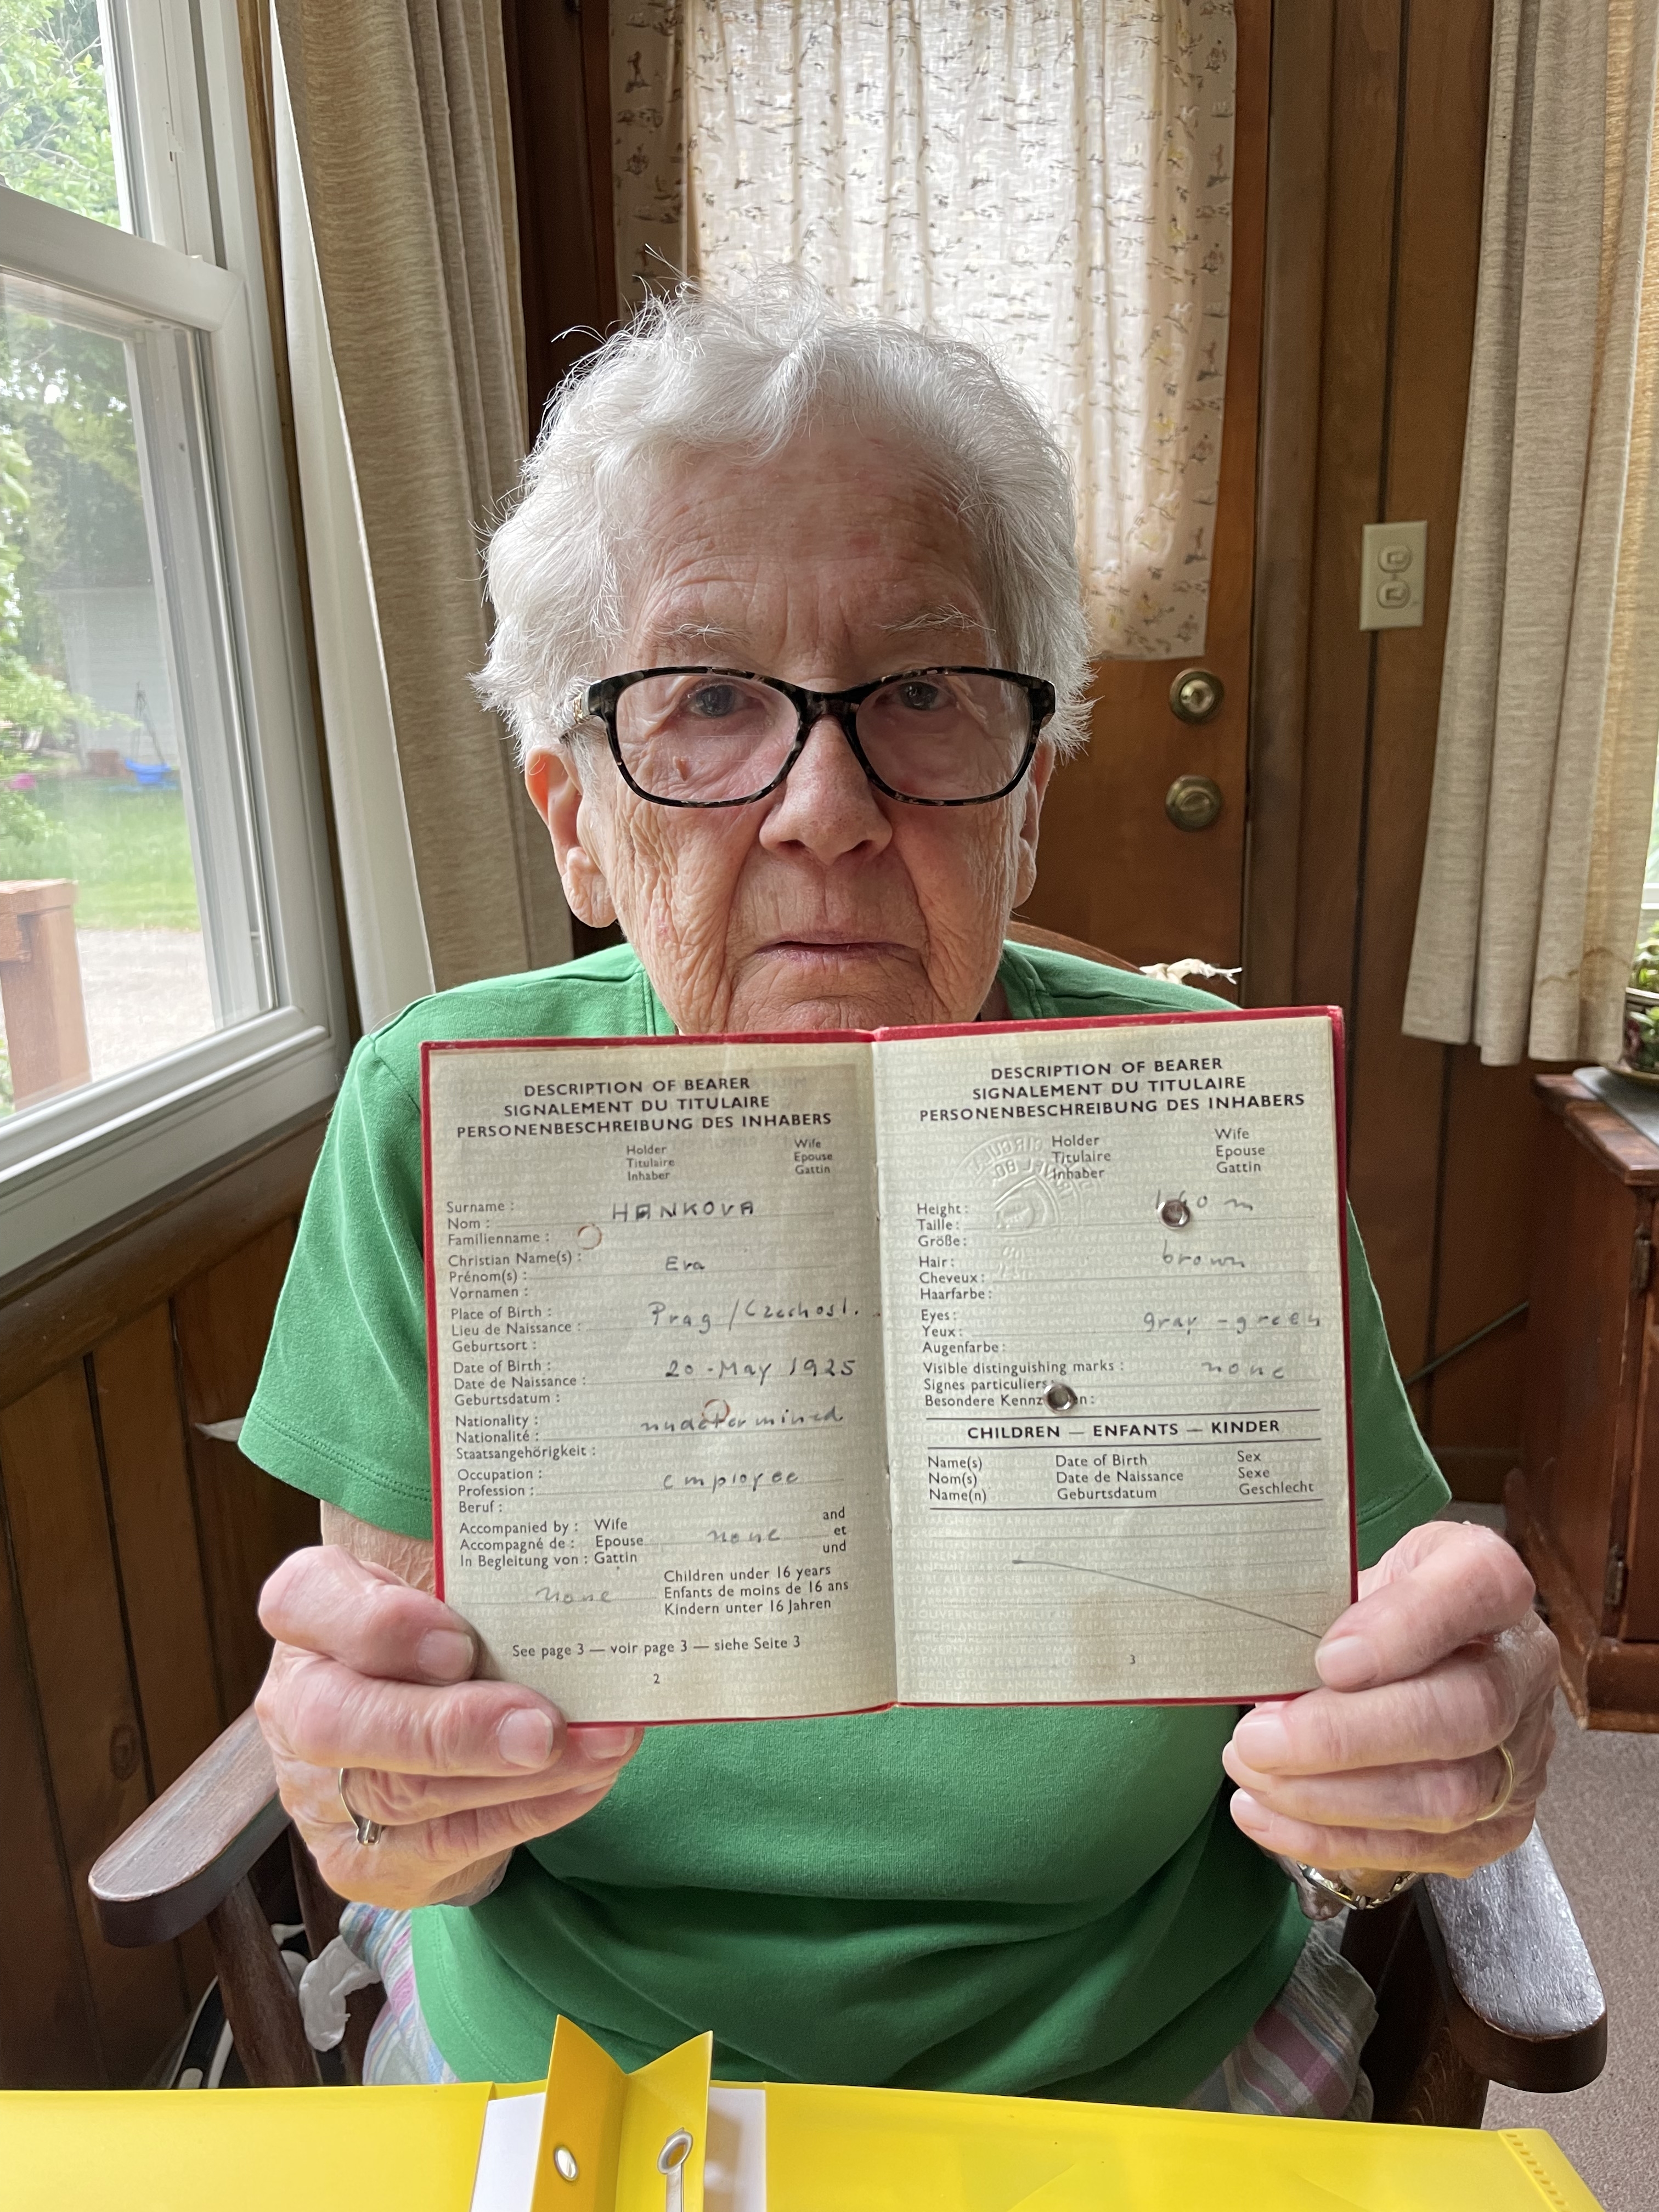 DESCRIPTION OF BEARER
SIGNALEMENT DU TITULAIRE
PERSONENBESCHREIBUNG DES INHABERS
Holder Wife
Titulaire Epouse
Inhaber Gattin
Surname : HANKOVA
Nom :
Familienname :
Christian Name(s) : Eva
Prénom(s) :
Vornamen :
Place of Birth : Prag / Czechosl.
Lieu de Naissance :
Geburtsort :
Date of Birth : 20 - May 1925
Date de Naissance :
Geburtsdatum :
Nationality : undetermined
Nationalité :
Staatsangehörigkeit :
Occupation : employee
Profession :
Beruf :
Accompanied by : Wife and
Accompagné de : Epouse none et
In Begleitung von : Gattin und
Children under 16 years
none Enfants de moins de 16 ans
Kindern unter 16 Jahren
See page 3 — voir page 3 — siehe Seite 3
2
DESCRIPTION OF BEARER
SIGNALEMENT DU TITULAIRE
PERSONENBESCHREIBUNG DES INHABERS
Holder Wife
Titulaire Epouse
Inhaber Gattin
Height: m
Taille:
Größe:
Hair: brown
Cheveux:
Haarfarbe:
Eyes: gray - green
Yeux:
Augenfarbe:
Visible distinguishing marks : none
Signes particuliers:
Besondere
CHILDREN — ENFANTS — KINDER
Name(s) Date of Birth Sex
Nom(s) Date de Naissance Sexe
Name(n) Geburtsdatum Geschlecht
3